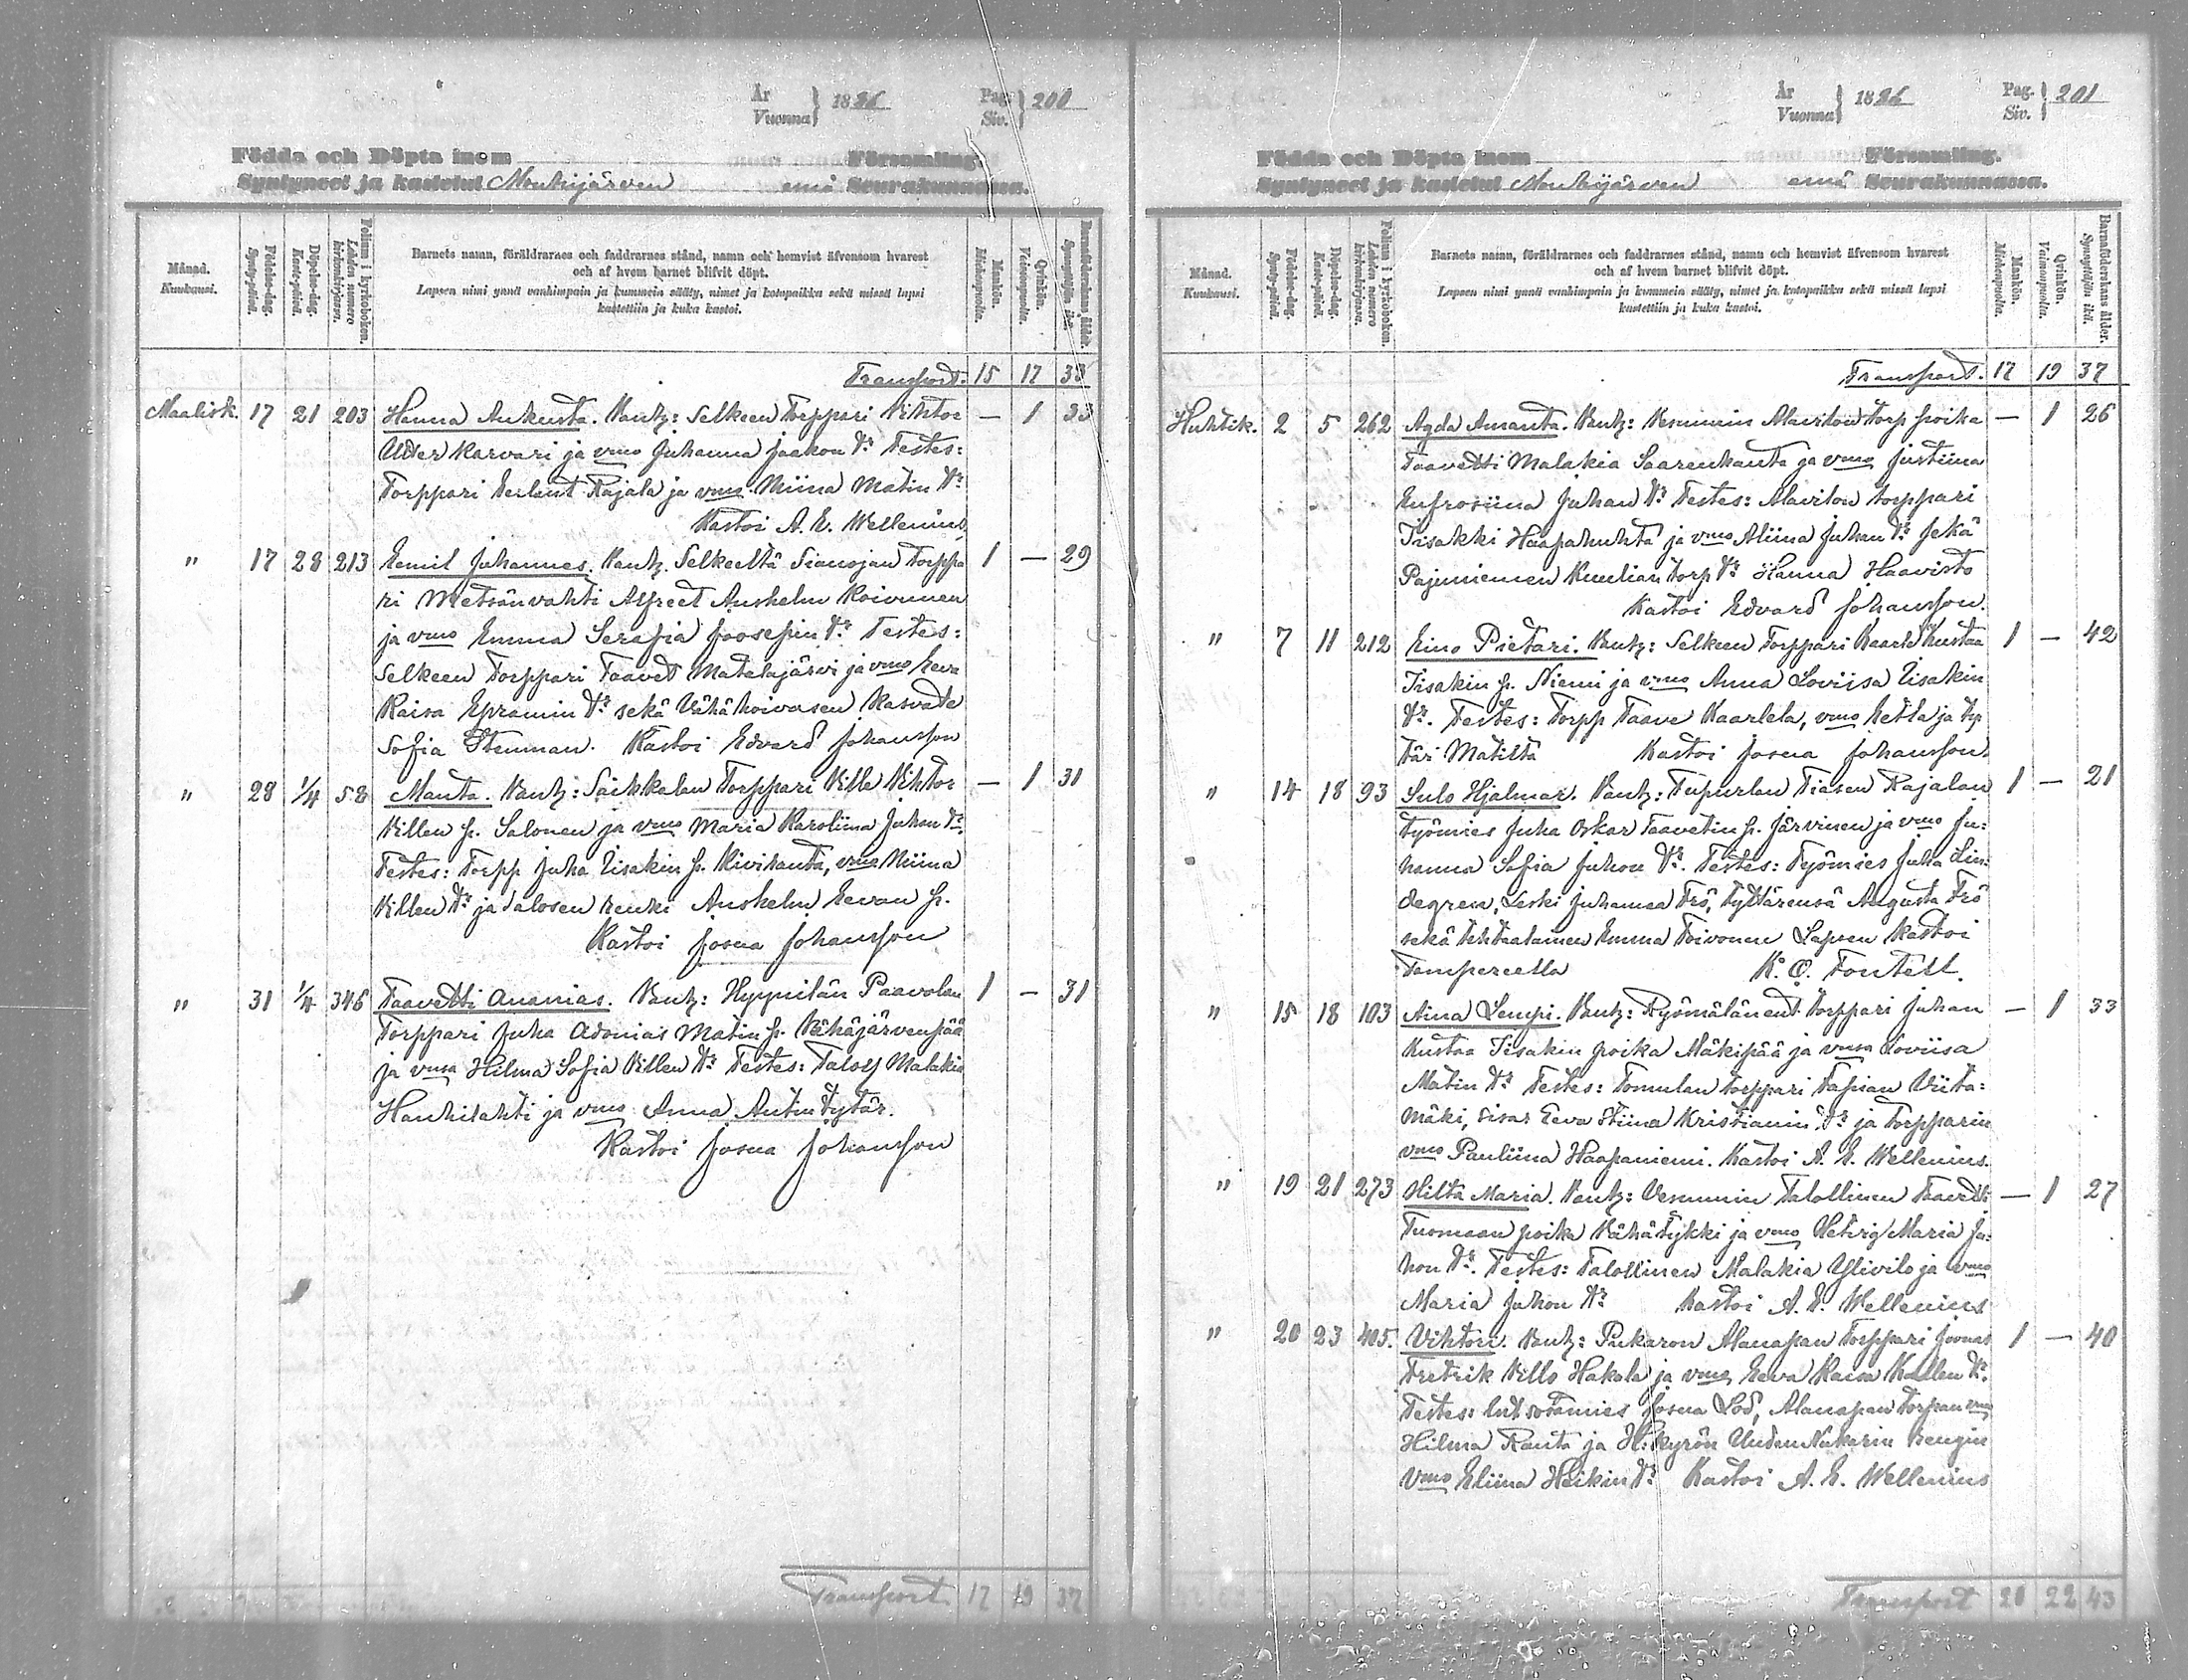 År
Vuonna } 1886
Pag.
Siv. } 200
Födda och Döpta inom Församling.
Syntyneet ja kastetut Mouhijärven emä Seurakunnassa.
Månad.
Kuukausi.
Födelse-dag.
Syntypäivä.
Döpelse-dag.
Kastepäivä.
Folium i kyrkoboken.
Lehden numero kirkonkirjassa.
Barnets namn, föräldrarnes och faddrarnes stånd, namn och hemvist äfvensom hvarest
och af hvem barnet blifvit döpt.
Lapsen nimi ynnä vanhimpain ja kummein sääty, nimet ja kotopaikka sekä missä lapsi
kastettiin ja kuka kastoi.
Mankön.
Miehenpuolta.
Qvinkön.
Vaimonpuolta.
Barnaföderskans ålder.
Synnyttäjän ikä.
Transport. 15 17 33
Maalisk. 17 21 203 Hanna Aukusta. Vanh: Selkeen Torppari Vihtor — 1 33
Karvari ja vmo Juhanna Jaakon tr Testes:
Torppari Rajala ja vmo Miina Matin tr
Kastoi A. E. Wellenius
" 17 28 213 Eemil Juhannes. Vanh. Selkeeltä Sianojan Torppa 1 — 29
ri Metsänvahti Alfreet Anshelm Koivunen
ja vmo Emma Serafia Joosepin tr Testes:
Selkeen Torppari Taavet Matalajärvi ja vmo Eeva
Kaisa Epramin tr sekä Vähähoivasen Kasvate
Sofia Stenman. Kastoi Edvard Johansson
" 28 1/4 58 Manta. Vanh: Saikkalan Torppari Ville Vihtor — 1 31
Villen p. Salonen ja vmo Maria Karoliina Juhan tr
Testes: Torpp Juha Iisakin p. Kivihanta, vmo Miina
Villen tr ja Salosen renki Anshelm Eevan p.
Kastoi Josua Johansson
" 31 1/4 346 Taavetti Ananias. Vanh: Hyynilän Paavolan 1 — 31
Torppari Juha Adonias Matin p. Vähäjärvenpää
ja vmo Hilma Sofia Villen tr Testes: Malakia
Hanhilahti ja vmo Anna Antin tytär.
Kastoi Josua Johansson
Transport 17 19 37
År
Vuonna } 1886
Pag.
Siv. } 201
Födda och Döpta inom Församling.
Syntyneet ja kastetut Mouhijärven emä Seurakunnassa.
Månad.
Kuukausi.
Födelse-dag.
Syntypäivä.
Döpelse-dag.
Kastepäivä.
Folium i kyrkoboken.
Lehden numero kirkonkirjassa.
Barnets namn, föräldrarnes och faddrarnes stånd, namn och hemvist äfvensom hvarest
och af hvem barnet blifvit döpt.
Lapsen nimi ynnä vanhimpain ja kummein sääty, nimet ja kotopaikka sekä missä lapsi
kastettiin ja kuka kastoi.
Mankön.
Miehenpuolta.
Qvinkön.
Vaimonpuolta.
Barnaföderskans ålder.
Synnyttäjän ikä.
Transport. 17 19 37
Huhtik. 2 5 262 Agda Amanta. Vanh: Vesunnin Alavilon torp poika — 1 26
Taavetti Malakia Saarenkanta ja vmo Justiina
Eufrosiina Juhan tr Testes: Alavilon torppari
Iisakki Haapahuhta ja vmo Aliina Juhan tr sekä
Pajuniemen torp tr Hanna Haavisto
Kastoi Edvard Johansson.
" 7 11 212 Eino Pietari. Vanh: Selkeen Torppari Kaarle Kustaa 1 — 42
Iisakin p. Niemi ja vmo Anna Loviisa Iisakin
tr. Testes: Torpp Taave Kaarlela, vmo Hetla ja ty
tär Matilta Kastoi Josua Johansson.
" 14 18 93 Sulo Hjalmar. Vanh: Tupurlan Tiasen Rajalan 1 — 21
työmies Juha Oskar Taavetin p. Järvinen ja vmo Ju:
hanna Sofia Juhon tr. Testes: Työmies Juha Lin:
degren, Leski Juhanna Frö, tyttärensä Augusta Frö
sekä tehtaalainen Emma Toivonen Lapsen Kastoi
Tampereella K. O. Fontell.
" 15 18 103 Aina Lempi. Vanh: Ryömälän torppari Juhan — 1 33
Kustaa Iisakin poika Mäkipää ja vmo Loviisa
Matin tr Testes: Tomulan torppari Tapian Viita:
mäki, sisar Eeva Stiina Kristianin tr ja Torpparin
vmo Pauliina Haapaniemi. Kastoi A. E. Wellenius.
" 19 21 273 Hilta Maria. Vanh: Vesunnin Talollinen Taavetti — 1 27
Tuomaan poika Vähätykki ja vmo Hetvig Maria Ju:
hon tr. Testes: Talollinen Malakia Ylivilo ja vmo
Maria Juhon tr Kastoi A. E. Wellenius
" 20 23 405. Vihtori. Vanh: Pukaron Alanapan Torppari Joonas 1 — 40
Fretrik Hakala ja vmo Eeva Kaisa Kallen tr.
Testes: Ent sotamies Josua Lod, Alanapan torpan vmo
Hilma Ranta ja H:kyrön Uuden Nakarin rengin
vmo Eliina Heikin tr Kastoi A. E. Wellenius
Transport 20 22 43